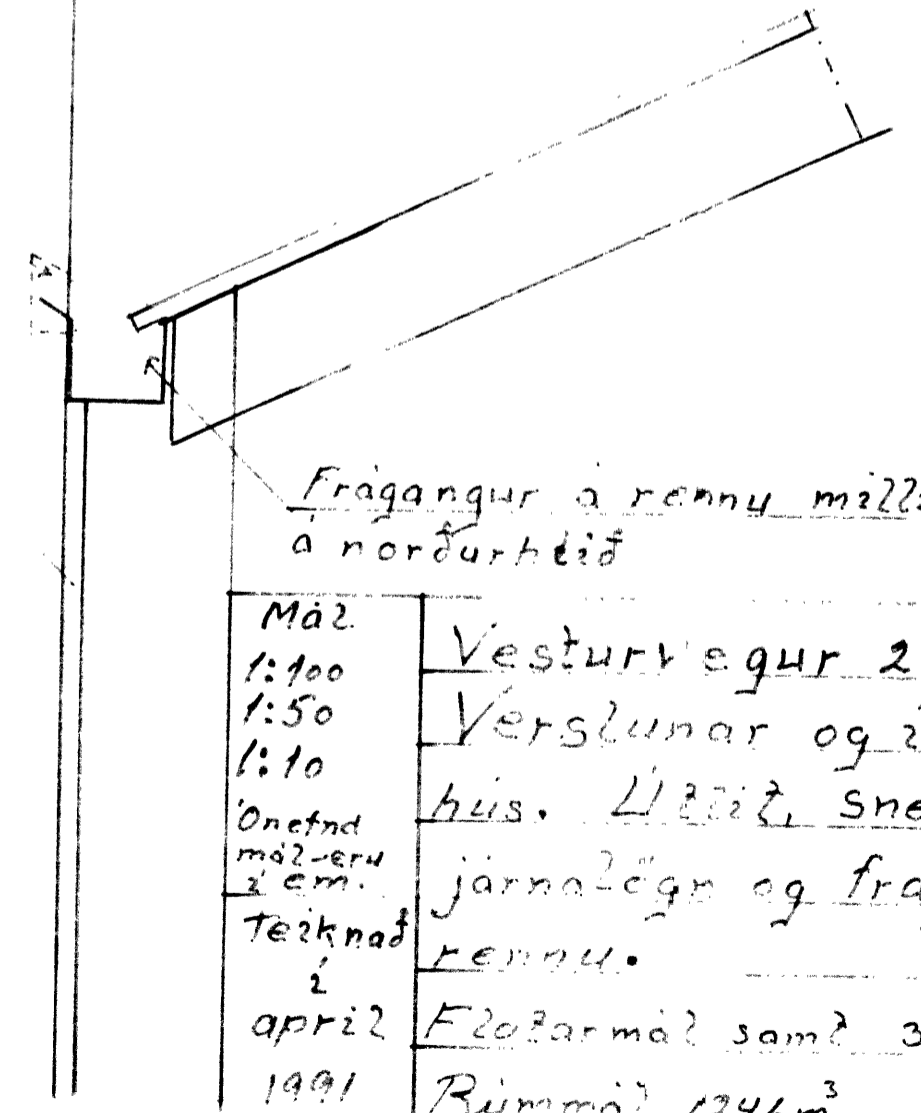 Frágangur á rennu milli
á norðurhlið
Mál
1:100
1:50
1:10
Ónefnd
mál eru
í cm.
Teiknað
í
apríl
1991
Vesturvegur 2
Verslunar og
hús. Útlit, sne
járnalögn og frá
rennu.
Flatarmál samt 3
Rúmmál 1246 m³